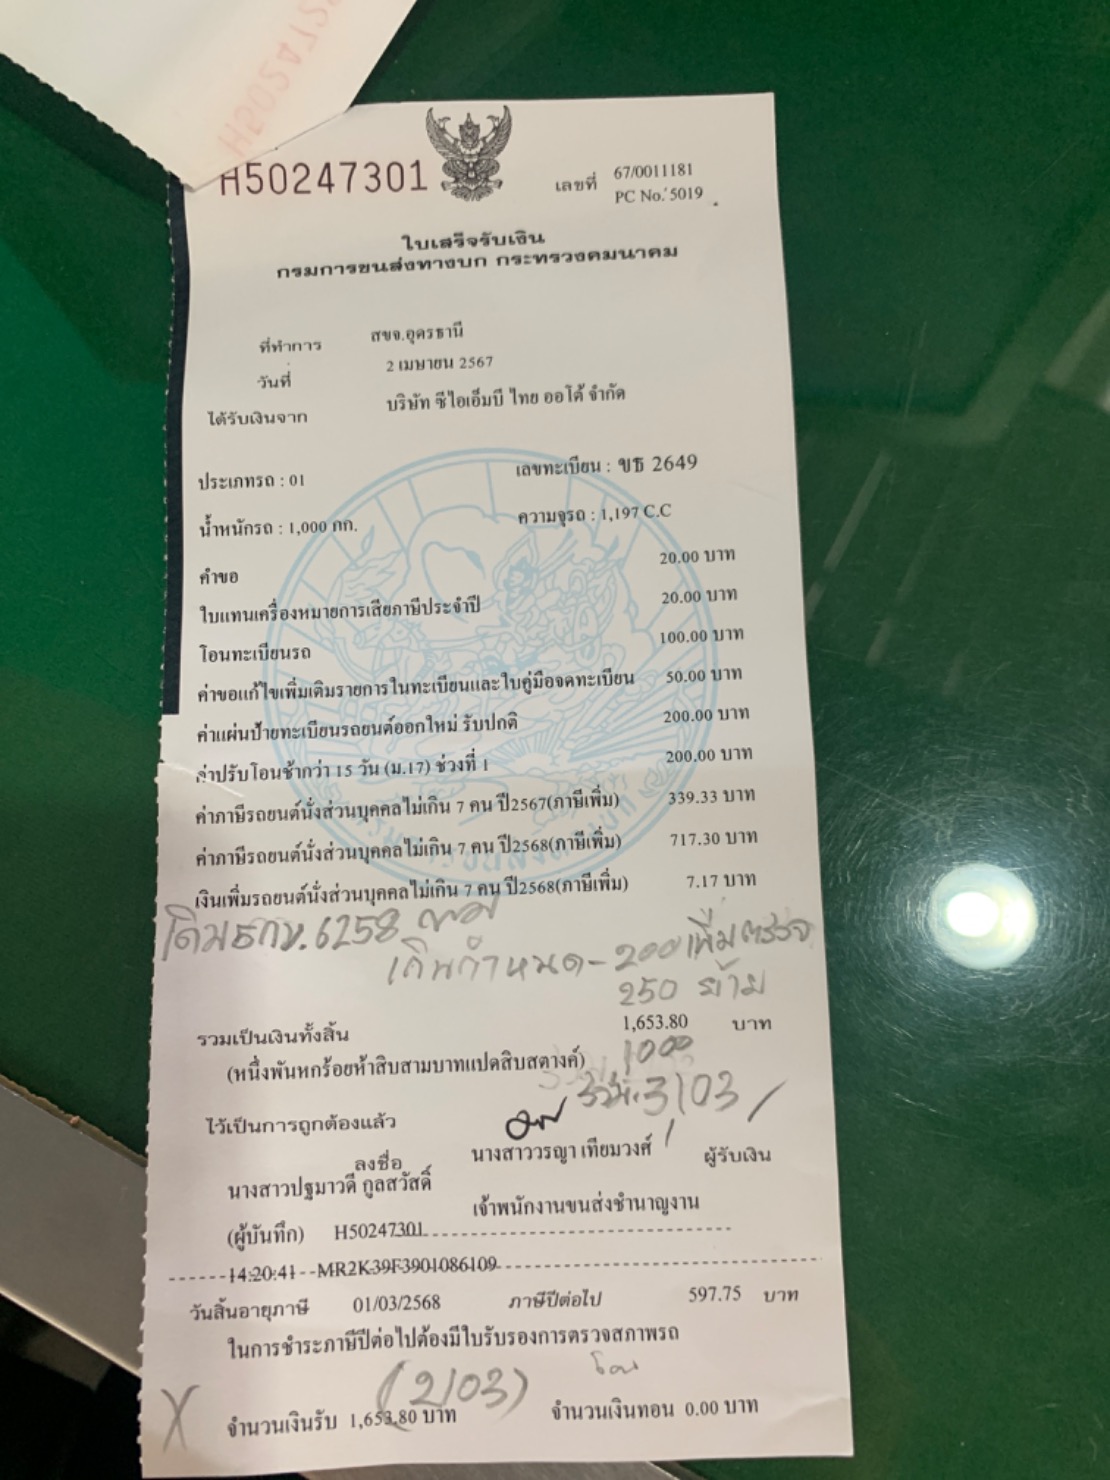 H50247301
เลขที่ 67/0011181
PC No. 5019
ใบเสร็จรับเงิน
กรมการขนส่งทางบก กระทรวงคมนาคม
ที่ทำการ สขจ.อุดรธานี
วันที่ 2 เมษายน 2567
ได้รับเงินจาก บริษัท ซีไอเอ็มบี ไทย ออโต้ จำกัด
ประเภทรถ : 01 เลขทะเบียน : ขธ 2649
น้ำหนักรถ : 1,000 กก. ความจุรถ : 1,197 C.C
คำขอ 20.00 บาท
ใบแทนเครื่องหมายการเสียภาษีประจำปี 20.00 บาท
โอนทะเบียนรถ 100.00 บาท
ค่าขอแก้ไขเพิ่มเติมรายการในทะเบียนและใบคู่มือจดทะเบียน 50.00 บาท
ค่าแผ่นป้ายทะเบียนรถยนต์ออกใหม่ รับปกติ 200.00 บาท
ค่าปรับโอนช้ากว่า 15 วัน (ม.17) ช่วงที่ 1 200.00 บาท
ค่าภาษีรถยนต์นั่งส่วนบุคคลไม่เกิน 7 คน ปี2567(ภาษีเพิ่ม) 339.33 บาท
ค่าภาษีรถยนต์นั่งส่วนบุคคลไม่เกิน 7 คน ปี2568(ภาษีเพิ่ม) 717.30 บาท
เงินเพิ่มรถยนต์นั่งส่วนบุคคลไม่เกิน 7 คน ปี2568(ภาษีเพิ่ม) 7.17 บาท
6258
เกินกำหนด - 200 เพิ่มตรวจ
250 ย้าย
รวมเป็นเงินทั้งสิ้น 1,653.80 บาท
(หนึ่งพันหกร้อยห้าสิบสามบาทแปดสิบสตางค์) 1000
รวม. 3,103
ไว้เป็นการถูกต้องแล้ว
ลงชื่อ นางสาววรญา เทียมวงศ์ ผู้รับเงิน
นางสาวปฐมาวดี กูลสวัสดิ์
เจ้าพนักงานขนส่งชำนาญงาน
(ผู้บันทึก) H50247301
14:20:41--MR2K39F3901086109
วันสิ้นอายุภาษี 01/03/2568 ภาษีปีต่อไป 597.75 บาท
ในการชำระภาษีปีต่อไปต้องมีใบรับรองการตรวจสภาพรถ
(2103) โอน
จำนวนเงินรับ 1,653.80 บาท จำนวนเงินทอน 0.00 บาท